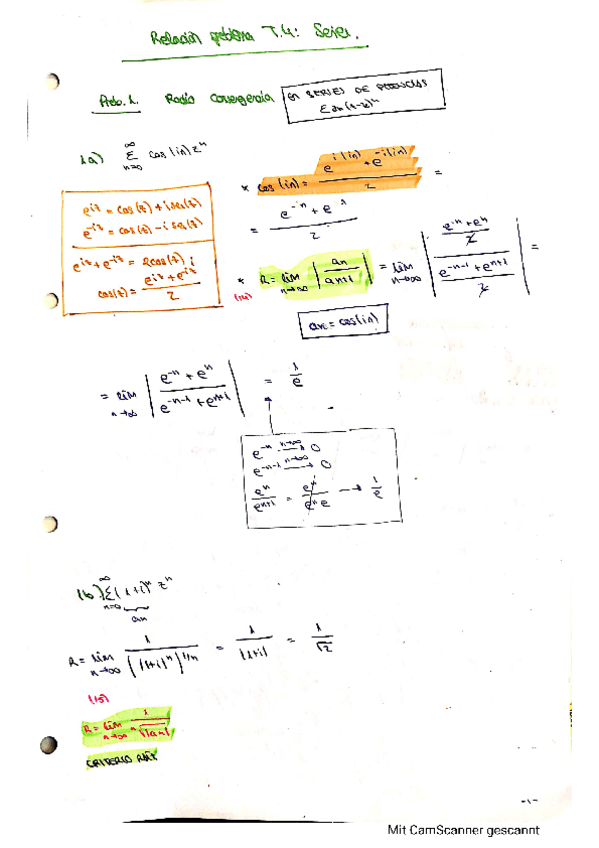 Relación problema T.4: Series.
Prob.1. Radio convergencia en SERIES DE POTENCIAS
Σ an(z-a)^n
1a) ∞Σn=0 cos(in)z^n
* cos(in) = (e^{i(in)} + e^{-i(in)})/2 =
e^{iz} = cos(z) + i sen(z)
e^{-iz} = cos(z) - i sen(z)
e^{iz} + e^{-iz} = 2cos(z) ;
cos(z) = (e^{iz} + e^{iz})/2
= (e^{-n} + e^{n})/2
* R = lim n→∞ |an/an+1| = lim n→∞ |((e^{-n} + e^{n})/2)/((e^{-n-1} + e^{n+1})/2)| =
(14)
an = cos(in)
= lim n→∞ |(e^{-n} + e^{n})/(e^{-n-1} + e^{n+1})| = 1/e
e^{-n} n→∞ → 0
e^{-n-1} n→∞ → 0
e^{n}/e^{n+1} = e^{n}/(e^{n} e) → 1/e
(b) ∞Σn=0 (1+i)^n z^n
an
R = lim n→∞ 1/(|1+i|^n)^{1/n} = 1/|1+i| = 1/√2
(15)
R = lim n→∞ 1/ⁿ√|an|
CRITERIO RAÍZ
-1-
Mit CamScanner gescannt